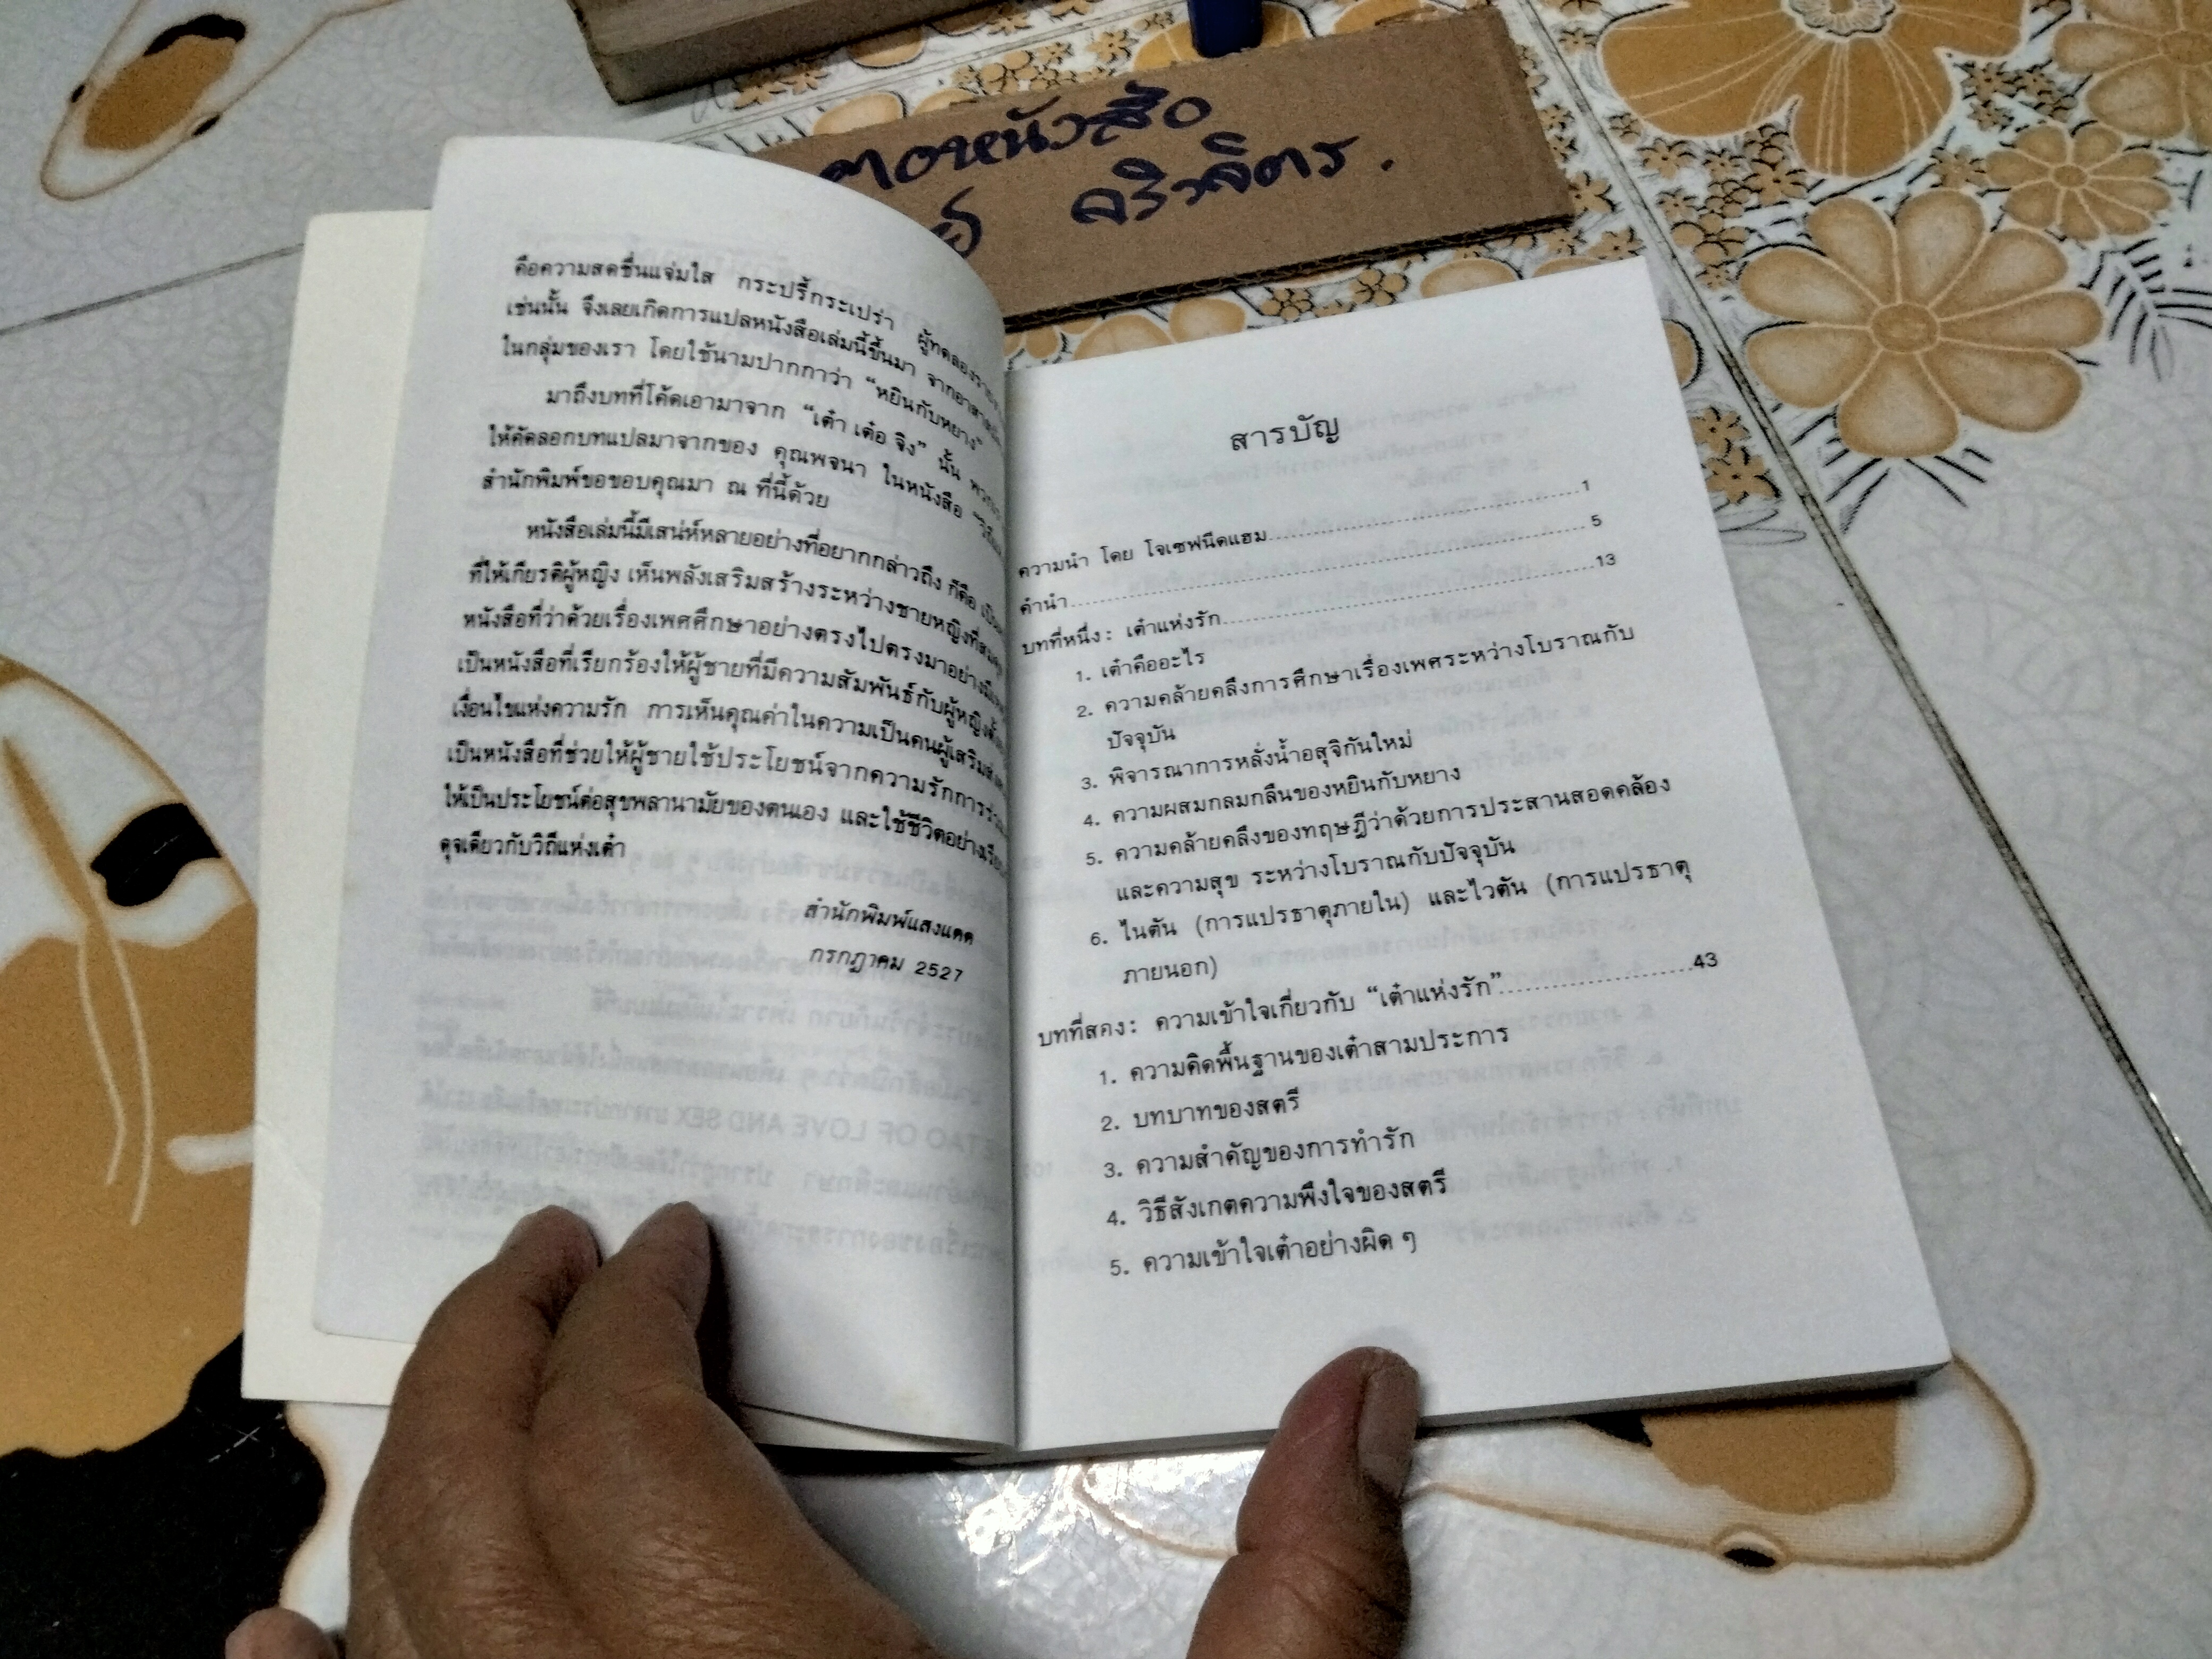 ตอหนังสือ
คือความสดชื่นแจ่มใส กระปรี้กระเปร่า
เช่นนั้น จึงเลยเกิดการแปลหนังสือเล่มนี้ขึ้นมา
ในกลุ่มของเรา โดยใช้นามปากกาว่า “หยินกับหยาง”
มาถึงบทที่โค้ดเอามาจาก “เต๋า เต๋อ จิง” นั้น
ให้คัดลอกบทแปลมาจากของ คุณพจนา ในหนังสือ
สำนักพิมพ์ขอขอบคุณมา ณ ที่นี้ด้วย
หนังสือเล่มนี้มีเสน่ห์หลายอย่างที่อยากกล่าวถึง ก็คือ
ที่ให้เกียรติผู้หญิง เห็นพลังเสริมสร้างระหว่างชายหญิง
หนังสือที่ว่าด้วยเรื่องเพศศึกษาอย่างตรงไปตรงมา
เป็นหนังสือที่เรียกร้องให้ผู้ชายที่มีความสัมพันธ์กับผู้หญิง
เงื่อนไขแห่งความรัก การเห็นคุณค่าในความเป็นคน
เป็นหนังสือที่ช่วยให้ผู้ชายใช้ประโยชน์จากความรัก
ให้เป็นประโยชน์ต่อสุขพลานามัยของตนเอง และใช้ชีวิต
ดุจเดียวกับวิถีแห่งเต๋า
สำนักพิมพ์แสงแดด
กรกฎาคม 2527
สารบัญ
ความนำ โดย โจเซฟนีดแฮม....................1
คำนำ....................5
บทที่หนึ่ง: เต๋าแห่งรัก....................13
1. เต๋าคืออะไร
2. ความคล้ายคลึงการศึกษาเรื่องเพศระหว่างโบราณกับ
ปัจจุบัน
3. พิจารณาการหลั่งน้ำอสุจิกันใหม่
4. ความผสมกลมกลืนของหยินกับหยาง
5. ความคล้ายคลึงของทฤษฎีว่าด้วยการประสานสอดคล้อง
และความสุข ระหว่างโบราณกับปัจจุบัน
6. ไนตัน (การแปรธาตุภายใน) และไวตัน (การแปรธาตุ
ภายนอก)
บทที่สอง: ความเข้าใจเกี่ยวกับ “เต๋าแห่งรัก”....................43
1. ความคิดพื้นฐานของเต๋าสามประการ
2. บทบาทของสตรี
3. ความสำคัญของการทำรัก
4. วิธีสังเกตความพึงใจของสตรี
5. ความเข้าใจเต๋าอย่างผิด ๆ